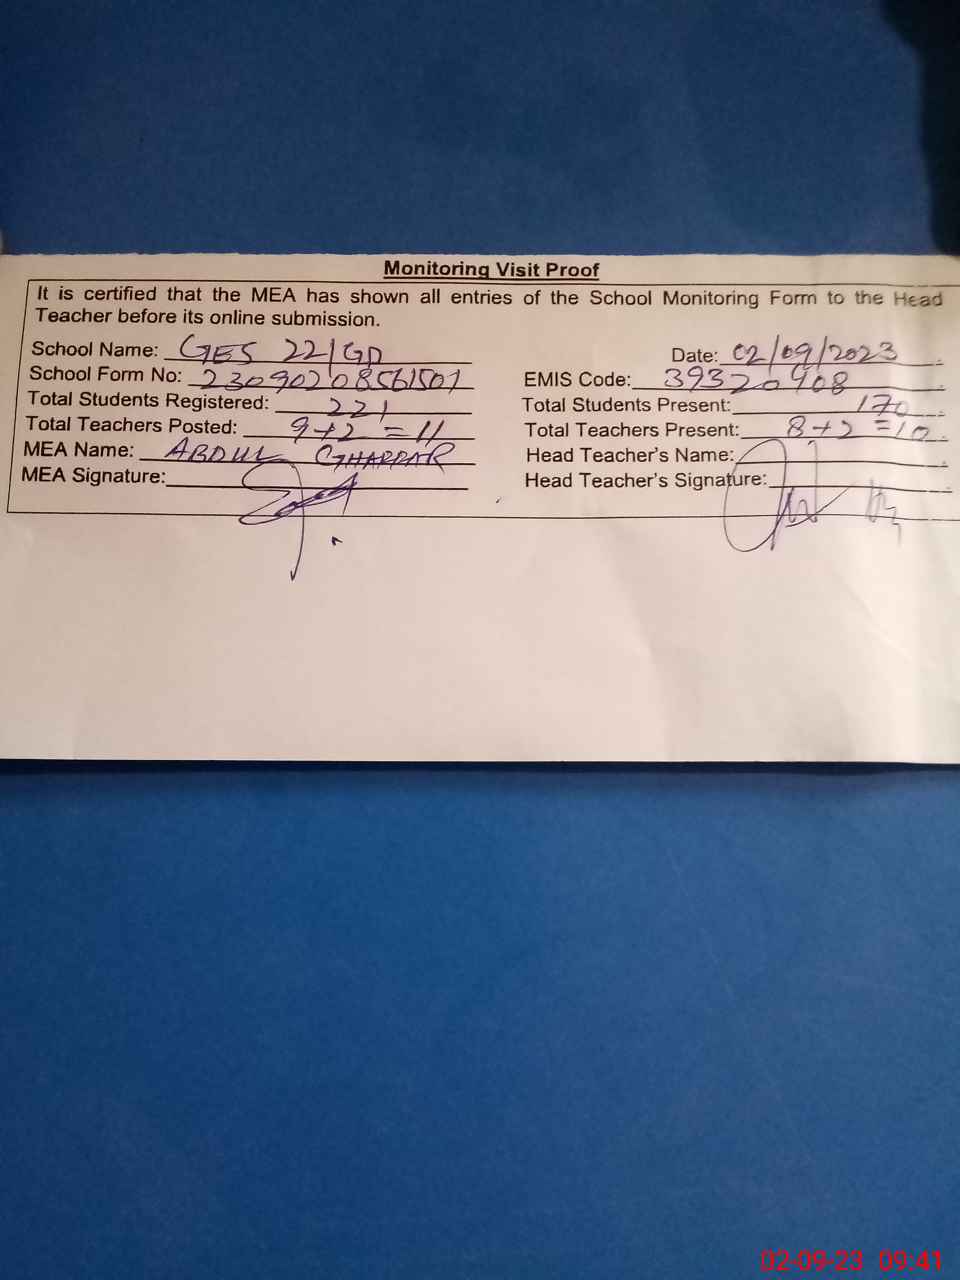 Monitoring Visit Proof
It is certified that the MEA has shown all entries of the School Monitoring Form to the Head
Teacher before its online submission.
School Name: GES 22/GD Date: 02/09/2023
School Form No: 23090208561501 EMIS Code: 39320908
Total Students Registered: 221 Total Students Present: 170
Total Teachers Posted: 9+2=11 Total Teachers Present: 8+2=10
MEA Name: ABDUL GHAFFAR Head Teacher's Name:
MEA Signature: Head Teacher's Signature:
02-09-23 09:41